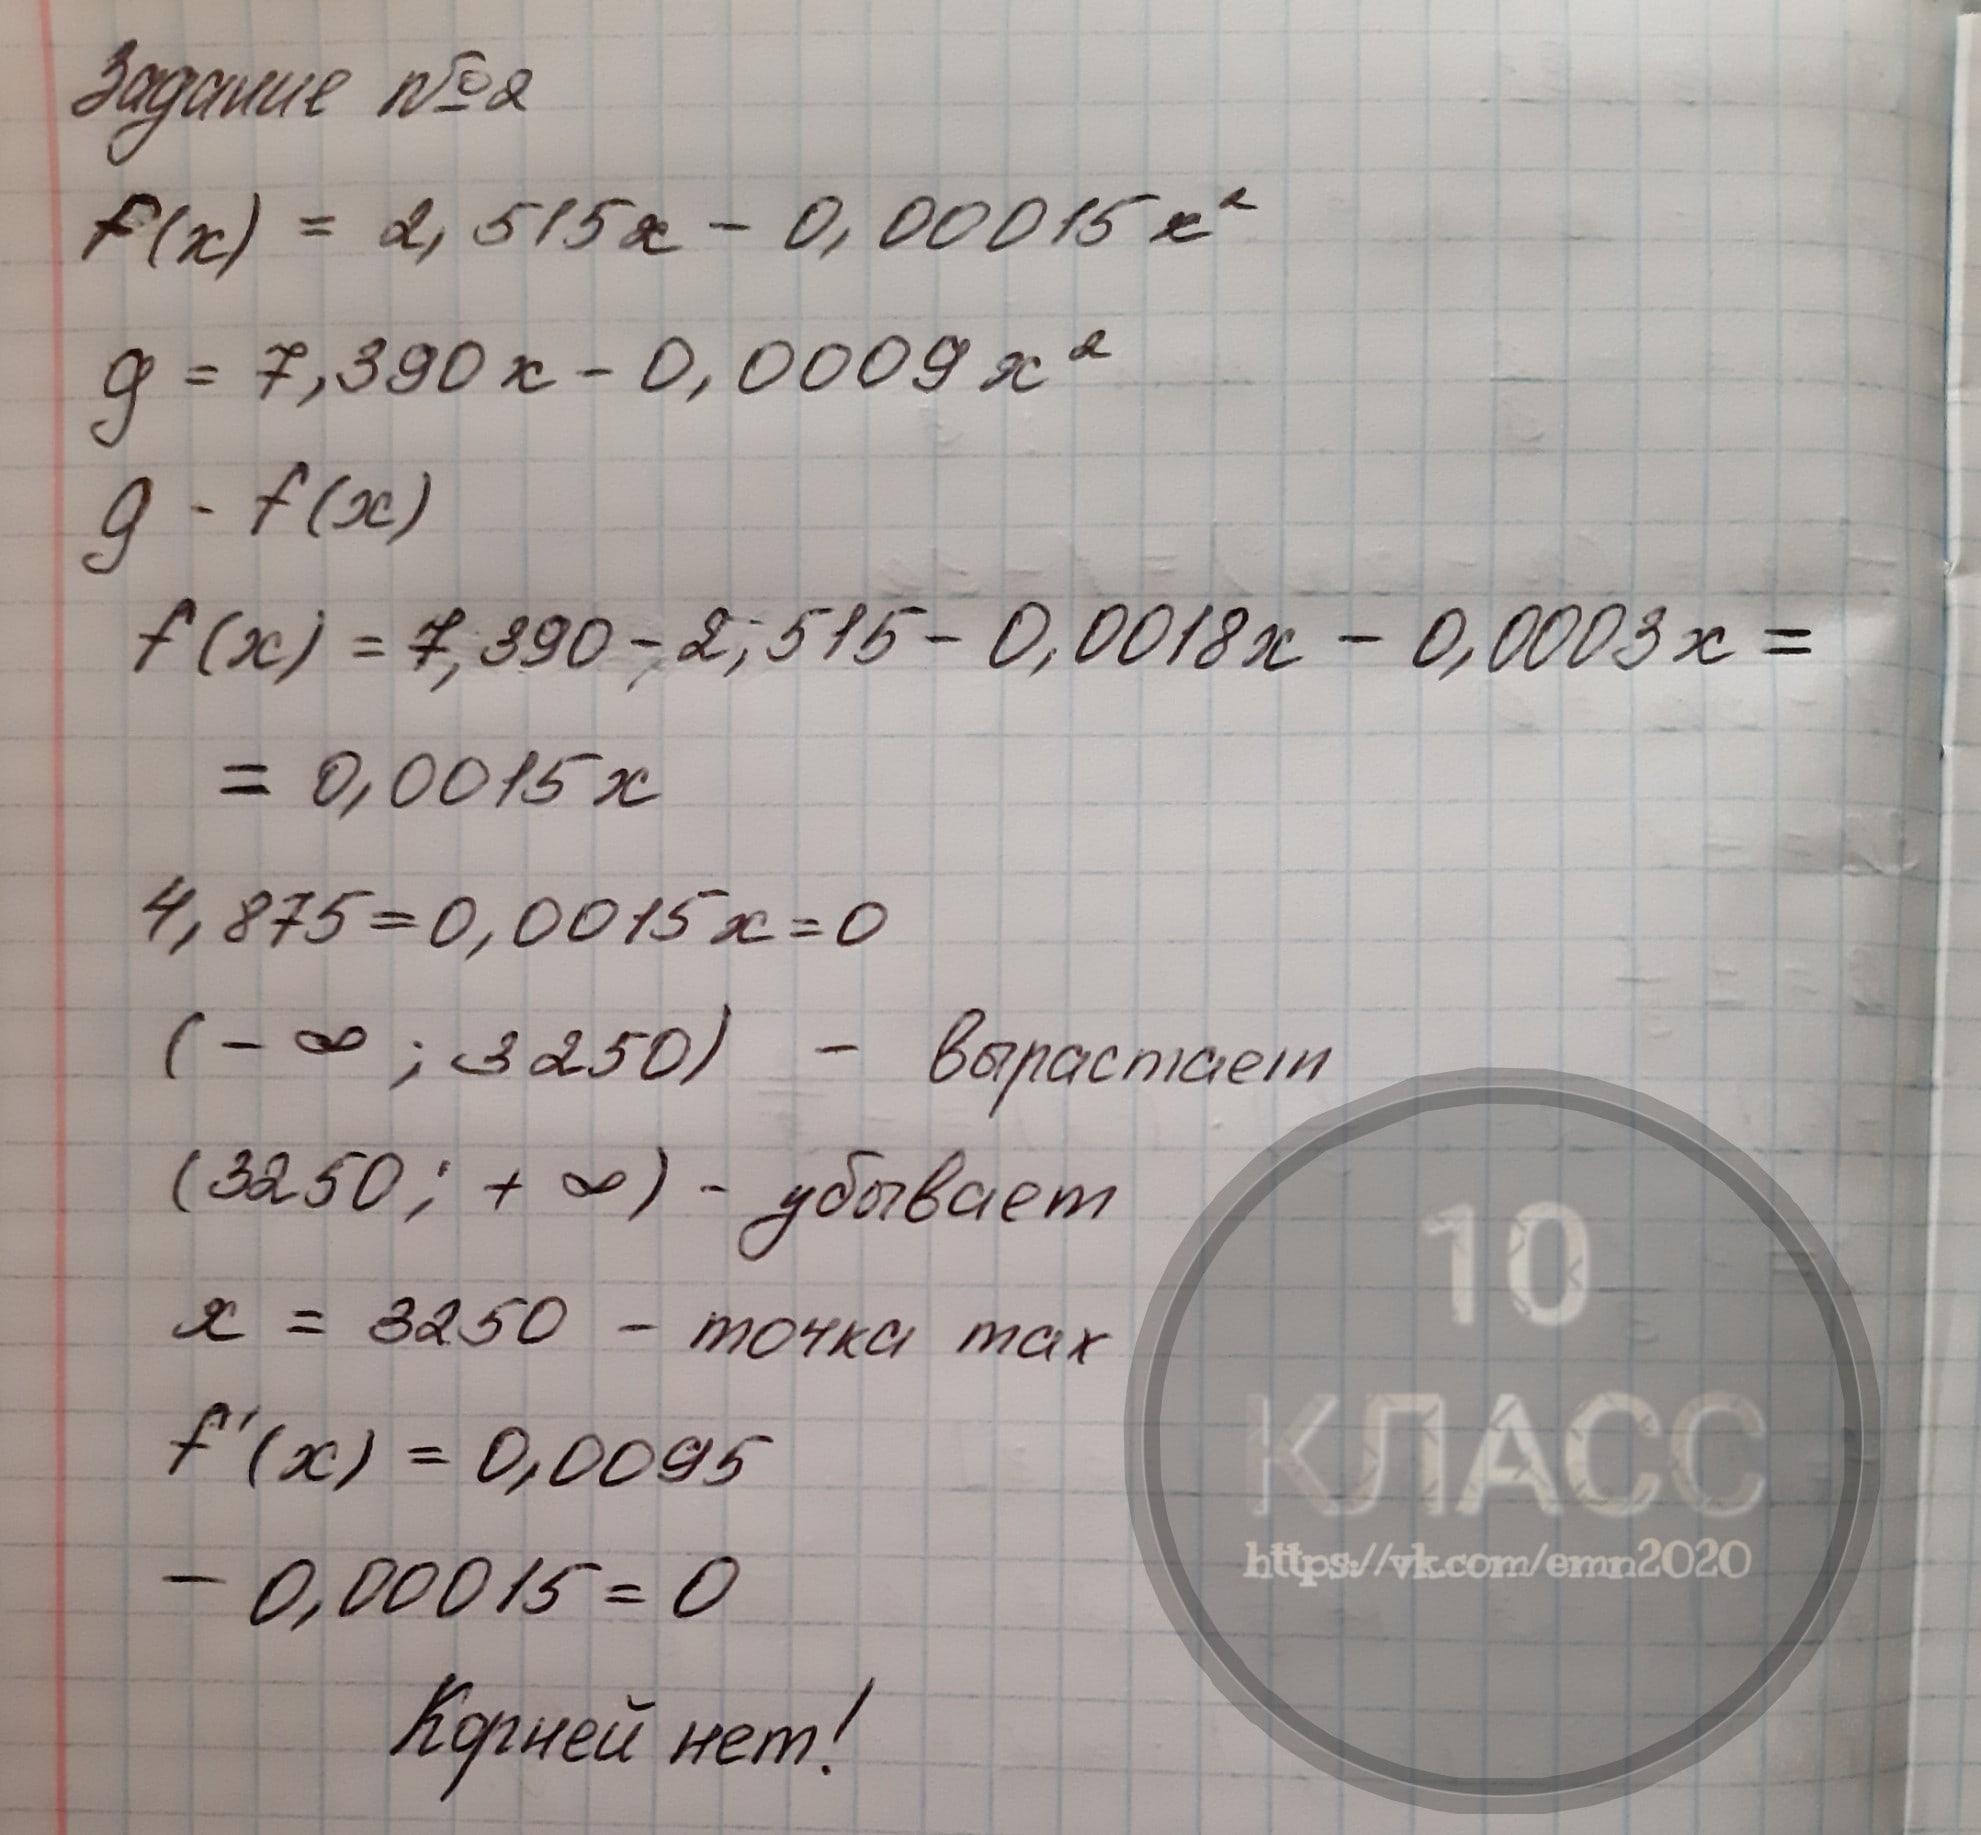 Задание №2
f(x) = 2,515x - 0,00015x²
g = 7,390x - 0,0009x²
g - f(x)
f(x) = 7,390 - 2,515 - 0,0018x - 0,0003x =
= 0,0015x
4,875 = 0,0015x = 0
(-∞; 3250) - вырастает
(3250; +∞) - убывает
x = 3250 - точка max
f'(x) = 0,0095
- 0,00015 = 0
Корней нет!
10
КЛАСС
https://vk.com/emn2020